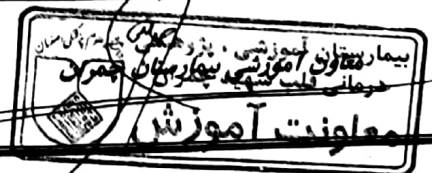 بیمارستان آموزشی، پژوهشی
درمانی قلب شهید چمران
معاون آموزشی بیمارستان چمران
معاونت آموزش